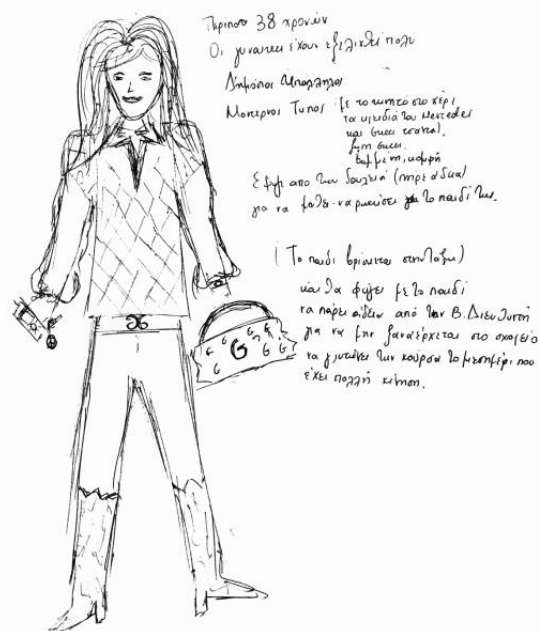 Περίπου 38 χρονών
Οι γυναίκες έχουν εξελιχθεί πολύ
Δημόσιος Υπάλληλος
Μοντέρνος Τύπος με το κινητό στο χέρι,
τα κλειδιά του Mercedes
και Gucci τσάντα).
ζώνη Gucci.
βαμμένη, κομψή
Έφυγε από την δουλειά (πήρε άδεια)
για να μάθει να το παιδί της.
(Το παιδί βρίσκεται στην Τάξη)
και θα φύγει με το παιδί
να πάρει άδεια από την Β. Διευθυντή
για να μην ξαναέρχεται στο σχολείο
να γλυτώνει την κούρσα το μεσημέρι που
έχει πολλή κίνηση.
G G G G G G G